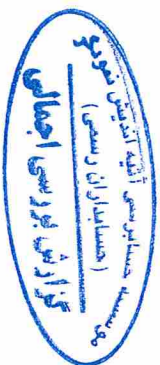 موسسه حسابرسی آتیه اندیش نمودگر
(حسابداران رسمی)
گزارش بررسی اجمالی